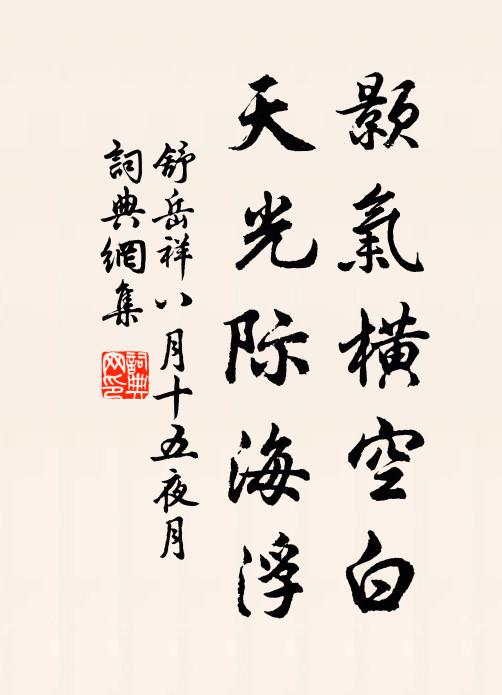 颢氣橫空白
天光际海浮
舒岳祥八月十五夜月
詞典網集
詞典网印